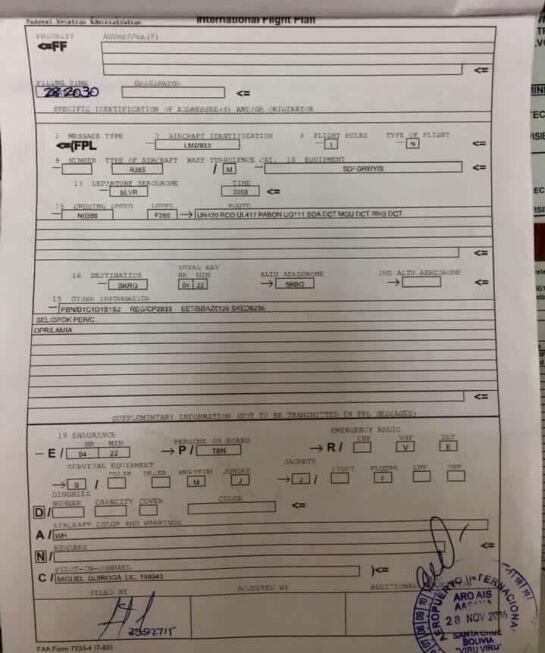 Federal Aviation Administration International Flight Plan
PRIORITY ADDRESSEE(S)
<=FF
<=
FILING TIME ORIGINATOR
28.2030 <=
SPECIFIC IDENTIFICATION OF ADDRESSEE(S) AND/OR ORIGINATOR
3 MESSAGE TYPE 7 AIRCRAFT IDENTIFICATION 8 FLIGHT RULES TYPE OF FLIGHT
<=(FPL LMI2933 I N <=
9 NUMBER TYPE OF AIRCRAFT WAKE TURBULENCE CAT. 10 EQUIPMENT
RJ85 / M <=
13 DEPARTURE AERODROME TIME
SLVR 2200 <=
15 CRUISING SPEED LEVEL ROUTE
N0380 F280 UN420 RCO UL417 PABON UQ111 BOA DCT MQU DCT RNG DCT
<=
TOTAL EET
16 DESTINATION HR MIN ALTN AERODROME 2ND ALTN AERODROME
SKRG 04 22 SKBO <=
18 OTHER INFORMATION
PBN/B1C1D1S1S2 REG/CP2933
SEL/GPDK PER/C
OPR/LAMIA
<=
SUPPLEMENTARY INFORMATION (NOT TO BE TRANSMITTED IN FPL MESSAGES)
19 ENDURANCE EMERGENCY RADIO
HR MIN PERSONS ON BOARD UHF VHF ELT
E / 04 22 P / TBN R / V E
SURVIVAL EQUIPMENT JACKETS
POLAR DESERT MARITIM JUNGLE LIGHT FLUORES UHF VHF
S / M J J / F
DINGHIES
NUMBER CAPACITY COVER COLOR
D / <=
AIRCRAFT COLOR AND MARKINGS
A / WH
REMARKS
N / <=
PILOT-IN-COMMAND
C / MIGUEL QUIROGA LIC. )<=
FILED BY ACCEPTED BY ADDITIONAL
AEROPUERTO INTERNACIONAL
ARO AIS
28 NOV
SANTA CRUZ
BOLIVIA
"VIRU VIRU"
FAA Form 7233-4 (7-93)